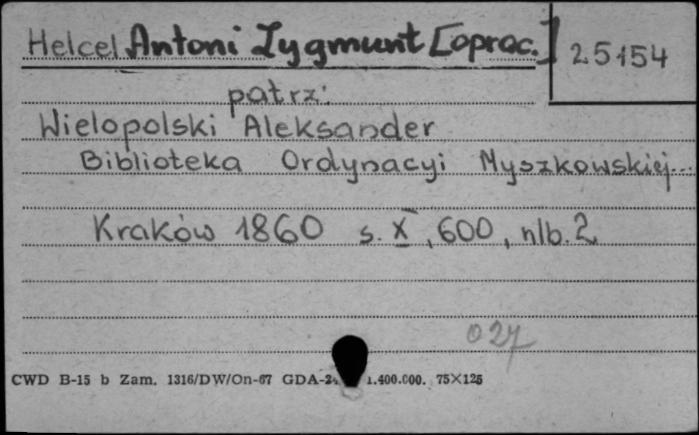 Helcel Antoni Zygmunt [oprac.]
25154
patrz:
Wielopolski Aleksander
Biblioteka Ordynacyi Myszkowskiej...
Kraków 1860 s. X, 600, nlb. 2
027
CWD B-15 b Zam. 1316/DW/On-67 GDA-2 1.400.000. 75X125